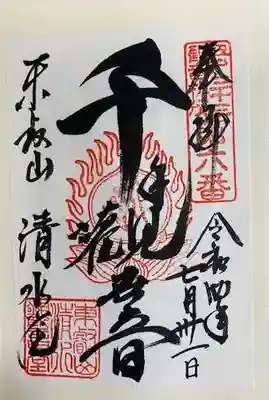 奉拝
令和四年
七月卅一日
千手観世音
東叡山
清水堂